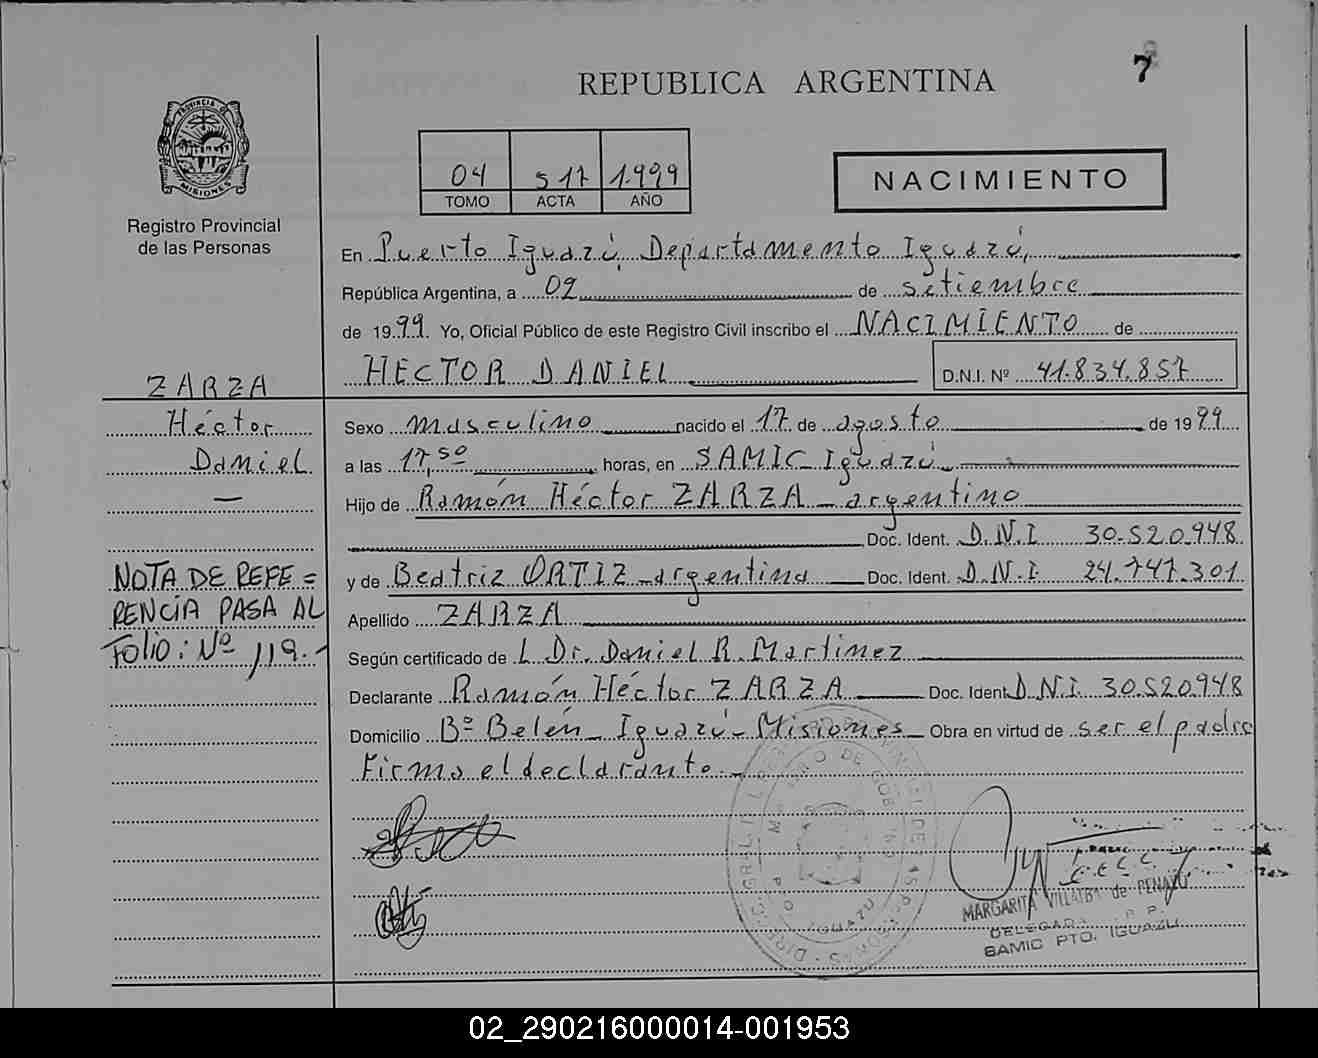 7
REPUBLICA ARGENTINA
PROVINCIA DE MISIONES
Registro Provincial
de las Personas
04 517 1.999
TOMO ACTA AÑO
NACIMIENTO
En Puerto Iguazú, Departamento Iguazú,
República Argentina, a 02 de setiembre
de 1999. Yo, Oficial Público de este Registro Civil inscribo el NACIMIENTO de
HECTOR DANIEL D.N.I. Nº 41.834.857
ZARZA
Héctor
Daniel
—
NOTA DE REFE=
RENCIA PASA AL
FOLIO: Nº 119.-
Sexo masculino nacido el 17 de agosto de 1999
a las 17,50 horas, en SAMIC Iguazú
Hijo de Ramón Héctor ZARZA - argentino
Doc. Ident. D.N.I 30.520.948
y de Beatriz ORTIZ - argentina Doc. Ident. D.N.I. 24.747.301
Apellido ZARZA
Según certificado de L Dr. Daniel R. Martinez
Declarante Ramón Héctor ZARZA Doc. Ident D.N.I. 30.520.948
Domicilio Bº Belén - Iguazú - Misiones Obra en virtud de ser el padre
Firma el declarante.-
MARGARITA VILLALBA de PENAYO
DELEGADA R. P.
SAMIC PTO. IGUAZU
IGUAZU
02_290216000014-001953